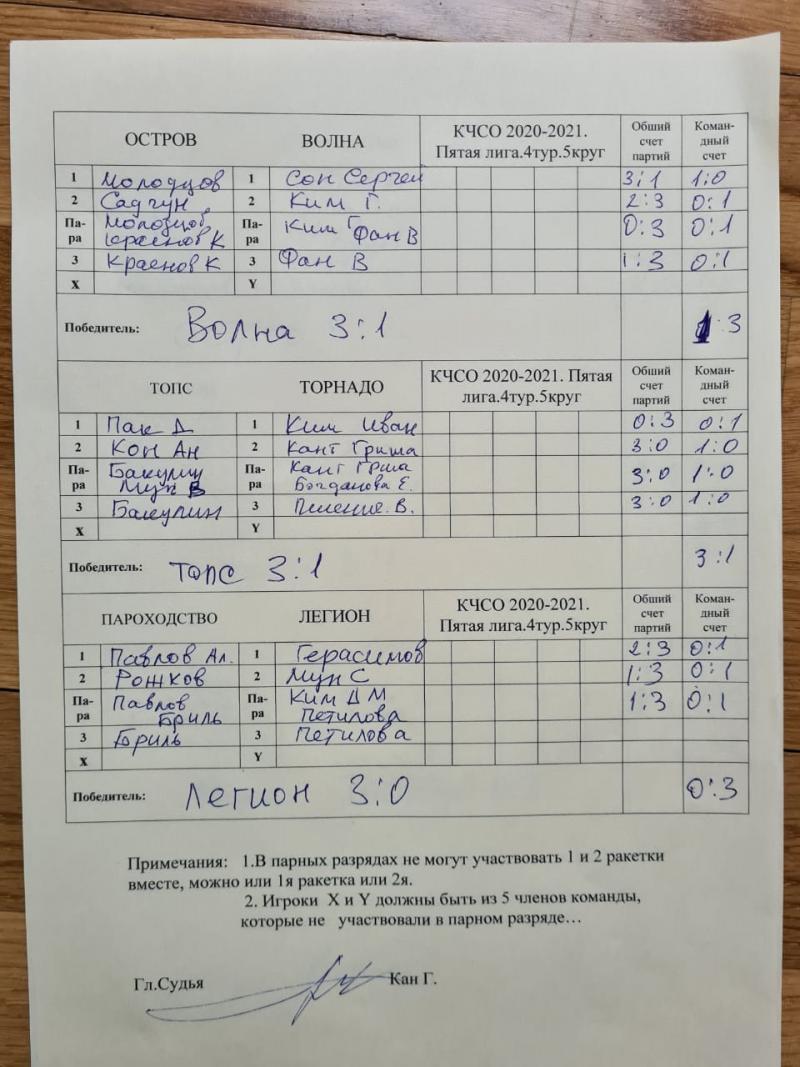 ОСТРОВ ВОЛНА КЧСО 2020-2021. Пятая лига.4тур.5круг Общий счет партий Коман-дный счет
1 Молодцов 1 Сон Сергей 3:1 1:0
2 Садчун 2 Ким Г. 2:3 0:1
Па-ра Молодцов Краснов К Па-ра Ким Г Фан В 0:3 0:1
3 Краснов К 3 Фан В 1:3 0:1
X Y
Победитель: Волна 3:1 1:3
ТОПС ТОРНАДО КЧСО 2020-2021. Пятая лига.4тур.5круг Общий счет партий Коман-дный счет
1 Пак Д 1 Ким Иван 0:3 0:1
2 Кон Ан 2 Кант Гриша 3:0 1:0
Па-ра Бакулин Мун В Па-ра Кант Гриша Богданова Е. 3:0 1:0
3 Бакулин 3 В. 3:0 1:0
X Y
Победитель: ТОПС 3:1 3:1
ПАРОХОДСТВО ЛЕГИОН КЧСО 2020-2021. Пятая лига.4тур.5круг Общий счет партий Коман-дный счет
1 Павлов Ал. 1 Герасимов 2:3 0:1
2 Рожков 2 Мун С 1:3 0:1
Па-ра Павлов Бриль Па-ра Ким Д М Петилова 1:3 0:1
3 Бриль 3 Петилова
X Y
Победитель: Легион 3:0 0:3
Примечания: 1.В парных разрядах не могут участвовать 1 и 2 ракетки
вместе, можно или 1я ракетка или 2я.
2. Игроки X и Y должны быть из 5 членов команды,
которые не участвовали в парном разряде…
Гл.Судья Кан Г.